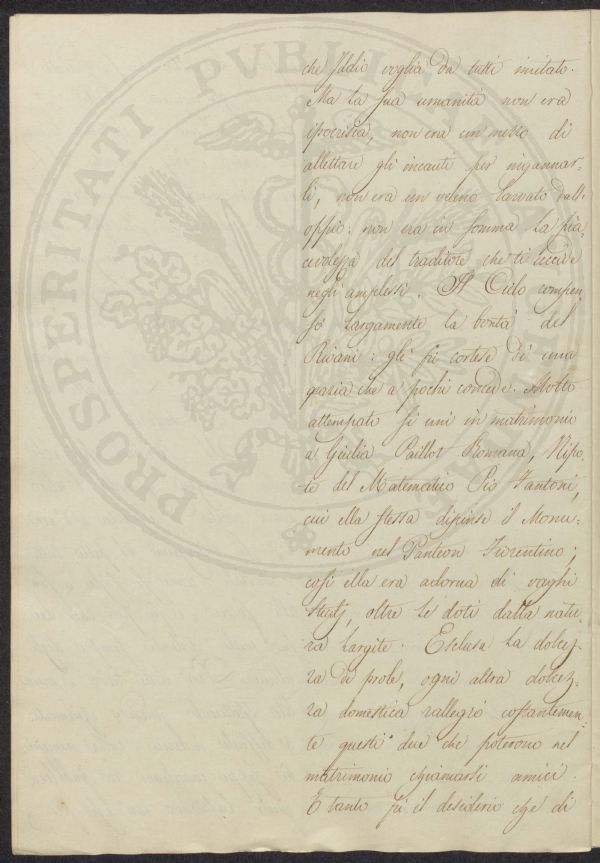 che Iddio voglia da tutti imitato.
Ma la sua umanità non era
ipocrisia, non era un mezzo di
allettare gli incauti per ingannar-
li, non era un veleno larvato dall'
oppio: non era in somma la pia-
cevolezza del traditore che ti uccide
negli amplessi. Il Cielo compen-
sò largamente la bontà del
Rivani: gli fu cortese di una
grazia che a pochi concede. Molto
attempato si unì in matrimonio
a Giulia Paillot Romana, Nipo-
te del Matematico Pio Fantoni,
cui ella stessa dipinse il Monu-
mento nel Panteon Fiorentino;
così ella era adorna di vaghi
studj, oltre le doti dalla natu-
ra largite. Esclusa la dolcez-
za di prole, ogni altra dolcez-
za domestica rallegrò costantemen-
te questi due che poterono nel
matrimonio chiamarsi amici.
E tanto fu il desiderio che di
PROSPERITATI PVBLICAE